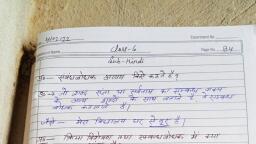 Experiment No.
Class-6
Page No. 84
Sub-Hindi
प्र०- संबंधबोधक अव्यय किसे कहते है?
उ०- जो शब्द संज्ञा या सर्वनाम का सम्बन्ध वाक्य
के अन्य शब्दों के साथ बताते है वे संबंध
बोधक कहलाते हैं।
जैसे- मेरा विद्यालय घर से दूर है।
प्र०- क्रिया विशेषण तथा संबंधबोधक में क्या